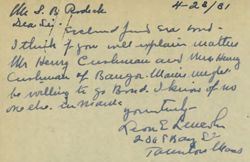 Mr. S. R. Rodick 4-28/31
Dear Sir:-
Enclosed find
I think if you will explain matters
Mr Henry Cushman and Mrs Henry
Cushman of Bangor Maine might
be willing to go Bond. I know of no
one else in Maine
yours truly
Leon E
St
Taunton Mass